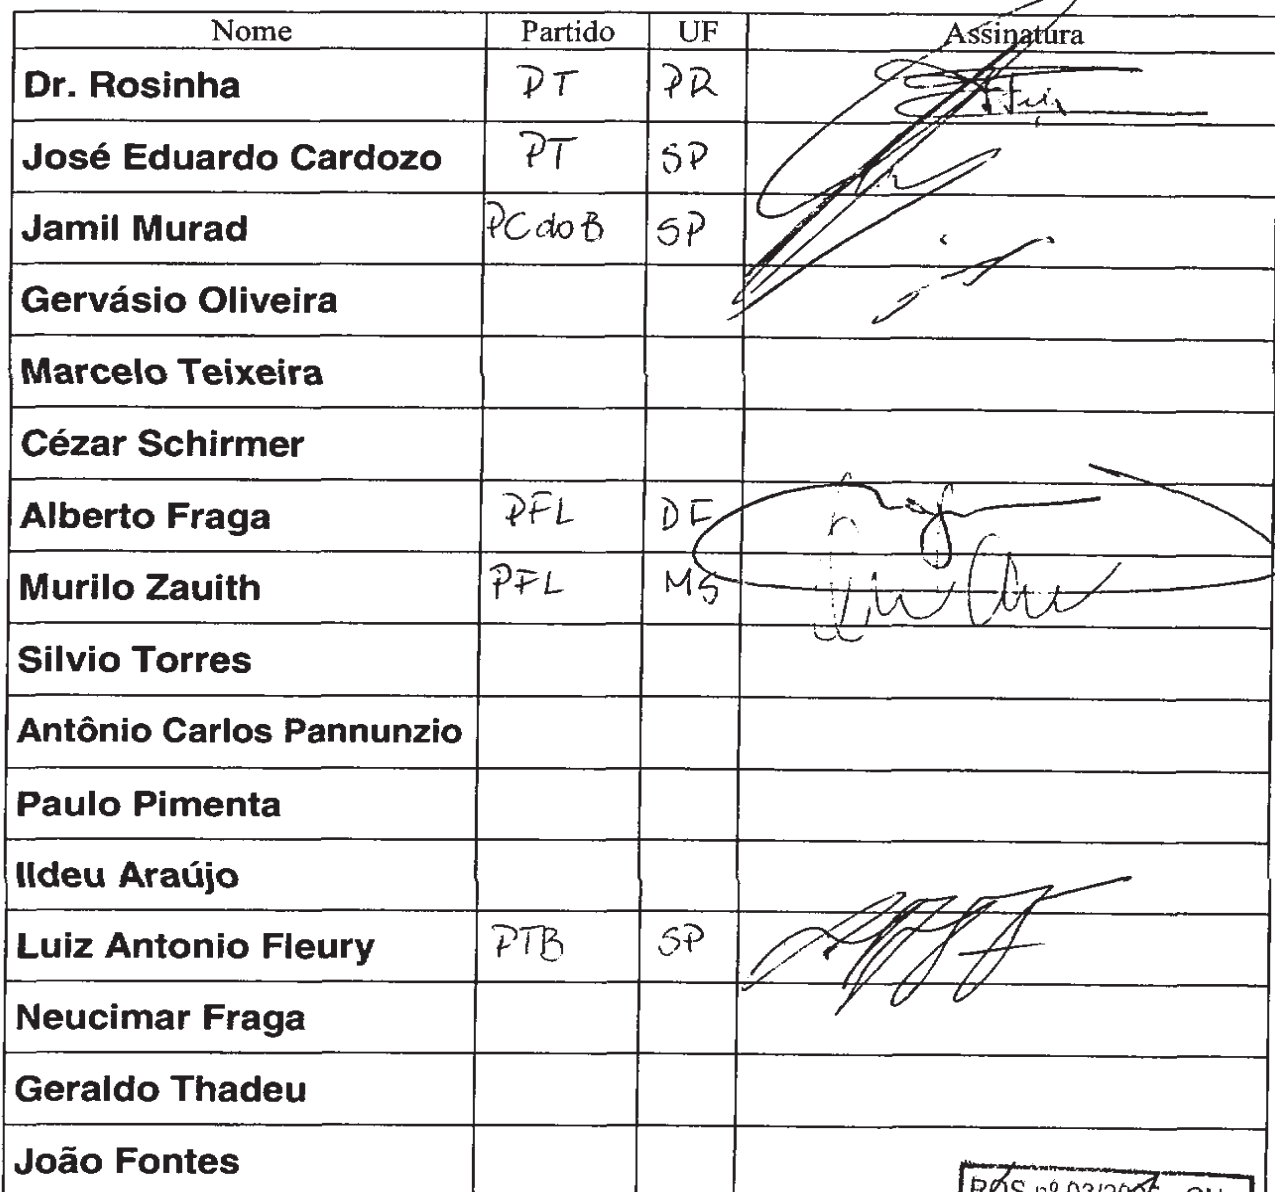 Nome Partido UF Assinatura
Dr. Rosinha PT PR
José Eduardo Cardozo PT SP
Jamil Murad PCdoB SP
Gervásio Oliveira
Marcelo Teixeira
Cézar Schirmer
Alberto Fraga PFL DF
Murilo Zauith PFL MS
Silvio Torres
Antônio Carlos Pannunzio
Paulo Pimenta
Ildeu Araújo
Luiz Antonio Fleury PTB SP
Neucimar Fraga
Geraldo Thadeu
João Fontes
RQS nº 03/2005 - CN